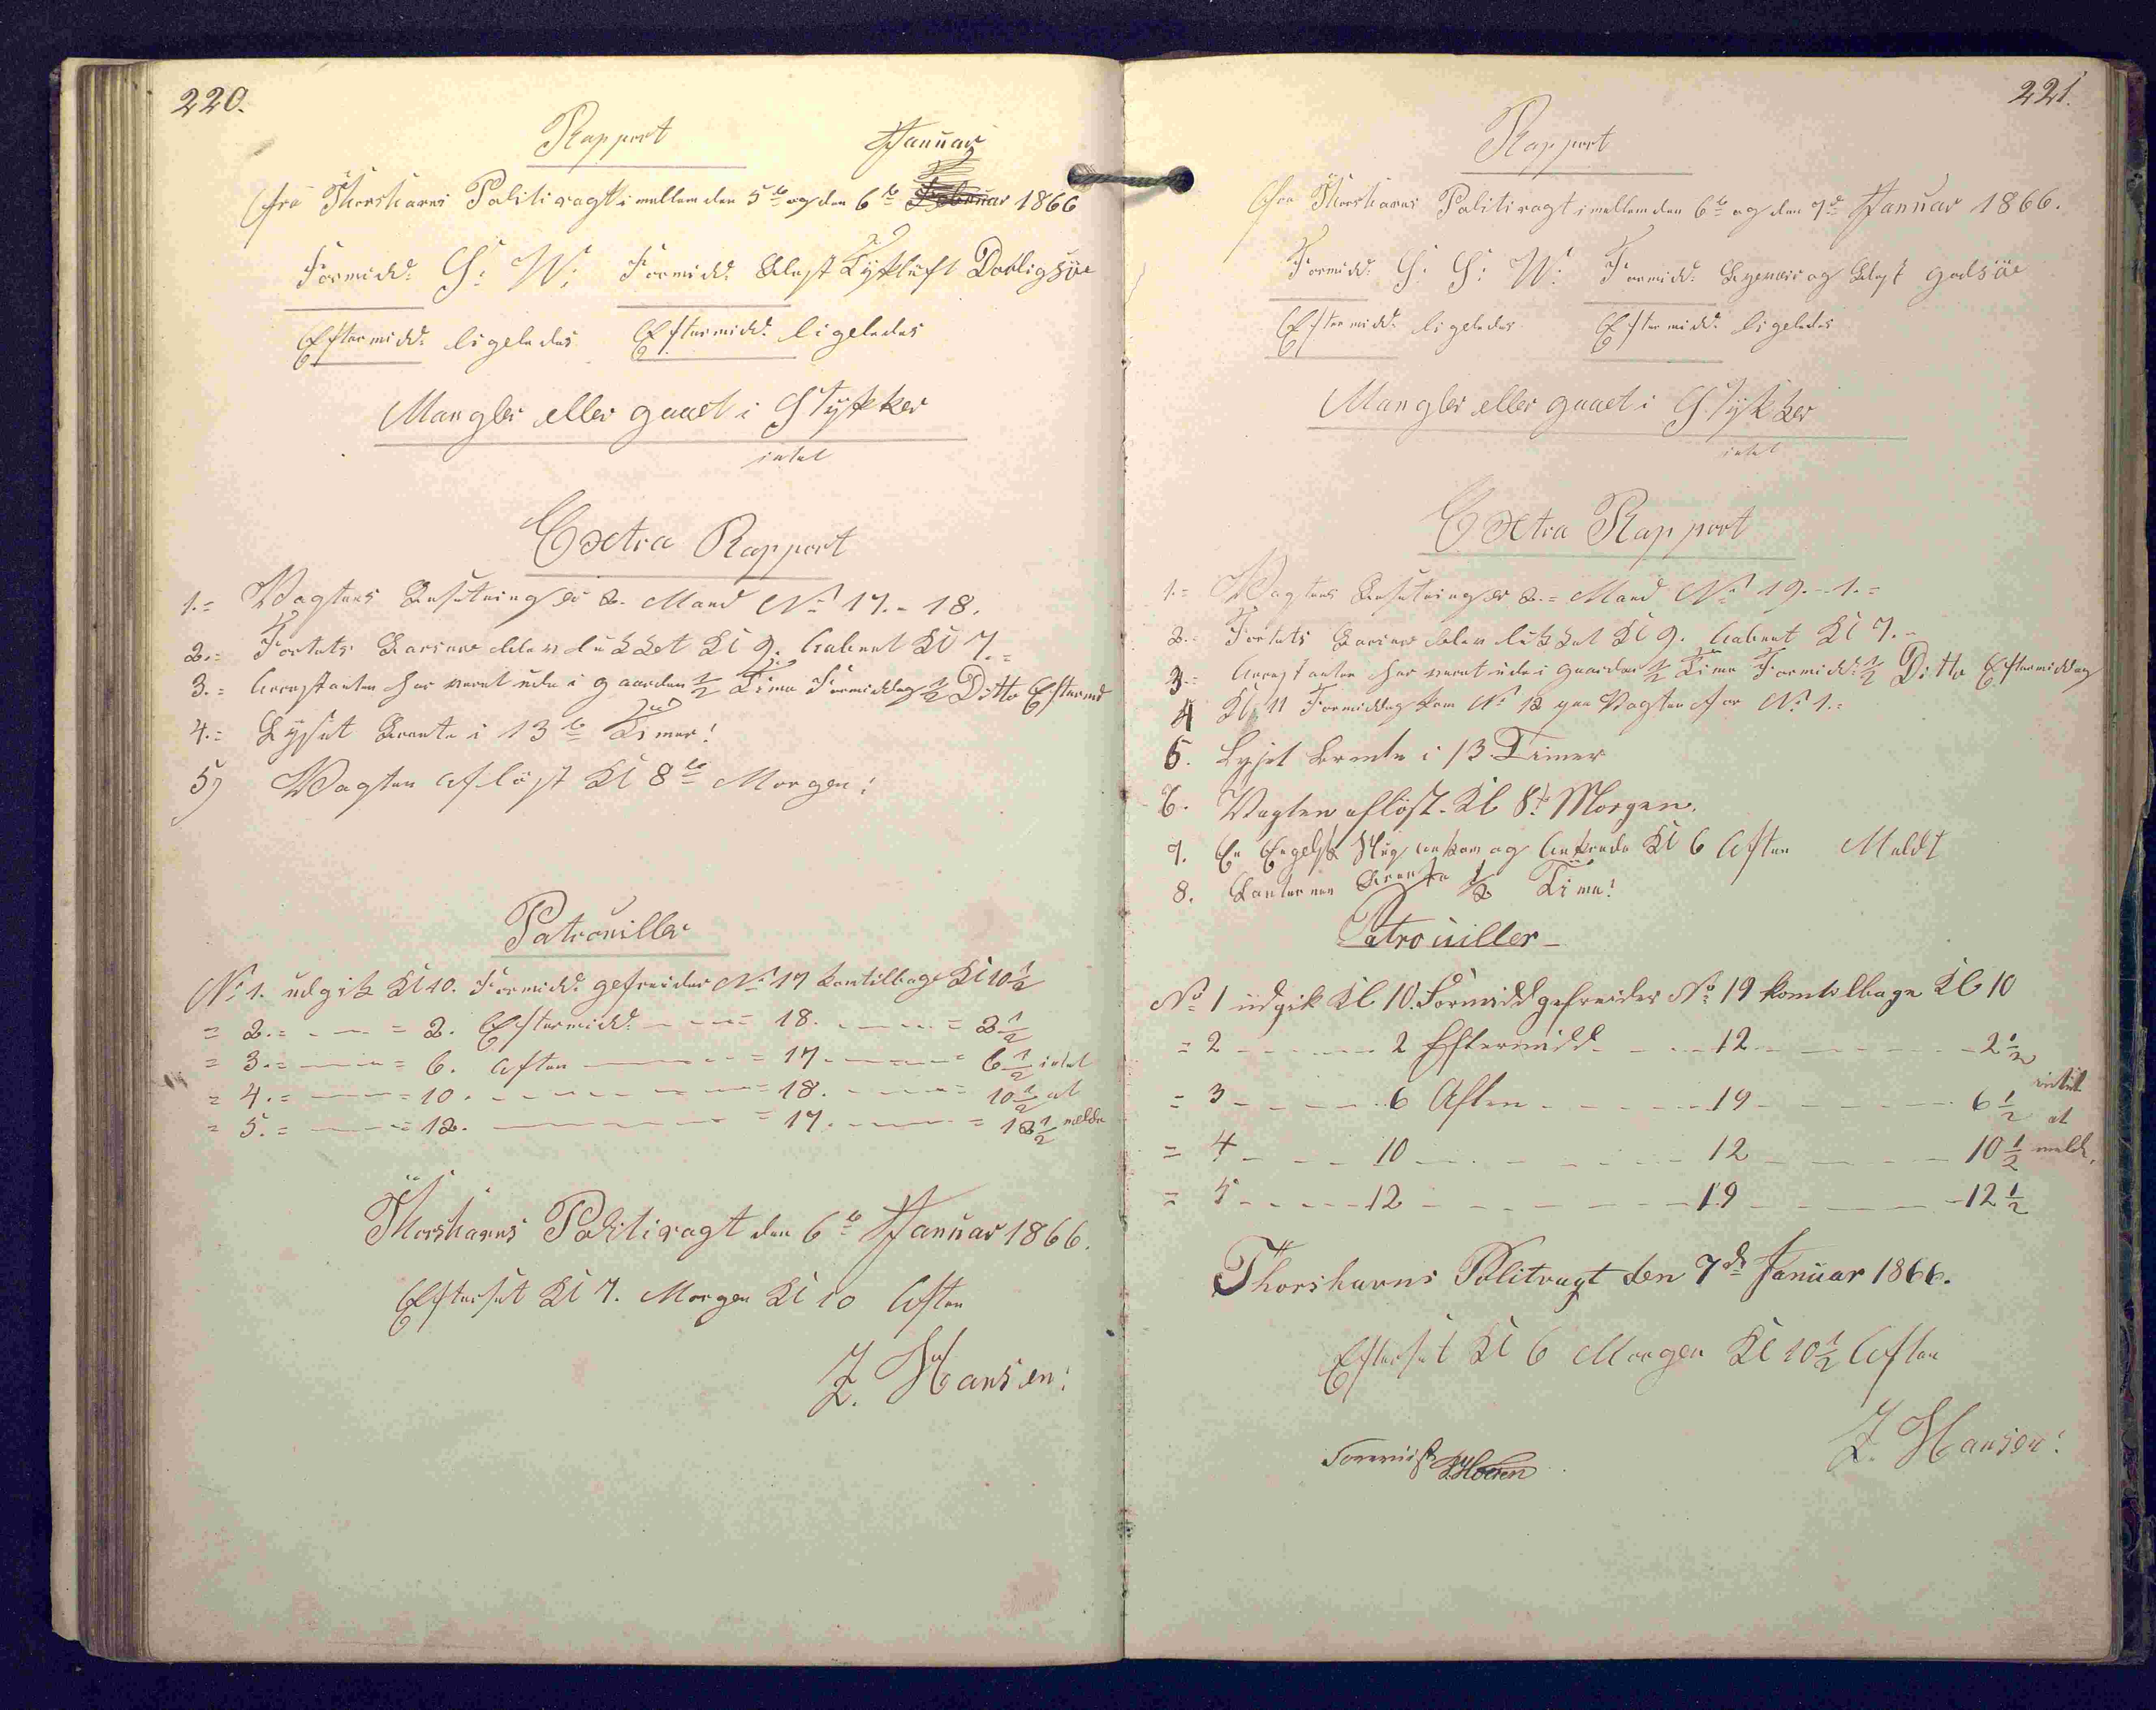 220.
Rapport
Januar
fra Thorshavns Politivagt imellem den 5te og den 6te Februar 1866
Formidd: S: W: Formidd: Blæst Tyk luft Daarlig Söe
Eftermidd: ligeledes Eftermidd: ligeledes
Mangler eller gaaet i Stykker
intet
Extra Rapport
1.= Vagtens Besætning er 2. Mand No 17.- 18.
2.= Fortets Barriere blev lukket Kl 9. Aabnet Kl 7.=
3.= Arrestanten har været ude i gaarden 1/2 Time Formiddag 1/2 Ditto Eftermid
4.= Lyset Brænte i 13te Timer!
5) Vagten aflöst Kl 8te Morgen!
Patrouiller
No 1. udgik Kl 10. Formidd: gefreider No 17 komtilbage Kl 10 1/2
= 2.= - - = 2. Eftermidd: - - = 18. - - = 2 1/2
= 3.= - - = 6. Aften - - = 17 - - = 6 1/2 intet
= 4.= - - = 10. - - = 18. - - = 10 1/2 at
= 5.= - - = 12. - - = 17. - - = 12 1/2 melde
Thorshavns Politivagt den 6te Januar 1866.
Efterset Kl 7. Morgen Kl 10 Aften
Z. Hansen!
221.
Rapport
fra Thorshavns Politivagt imellem den 6te og den 7de Januar 1866.
Formidd: S: S: W: Formidd: og Blæst god Söe
Eftermidd: ligeledes Eftermidd: ligeledes
Mangler eller gaaet i Stykker
intet
Extra Rapport
1.= Vagtens Besætning er 2.= Mand No 19.-1.=
2.= Fortets Barriere blev lukket Kl 9. Aabnet Kl 7.-
3.= Arrestanten har været ude i gaarden 1/2 Time Formidd: 1/2 Ditto Eftermiddag
4 Kl 11 Formiddag kom No 12 paa Vagten for No 1.=
5. Lyset brænte i 13 Timer
6. Vagten aflöst. Kl 8te Morgen.
7. En Engelsk Slup ankom og Ankrede Kl 6 Aften Meldt
8. Lanternen Brænte 1/2 Time!
Patrouiller
No 1 udgik Kl 10. Formidd gefreider No 19 komtilbage Kl 10
= 2 - - 2 Eftermidd - - 12 - - 2 1/2
= 3 - - 6 Aften - - 19 - - 6 1/2 intet
= 4 - - 10 - - 12 - - 10 1/2 at melde.
= 5 - - 12 - - 19 - - 12 1/2
Thorshavns Politvagt den 7de Januar 1866.
Efterset Kl 6 Morgen Kl 10 1/2 Aften
Z. Hansen!